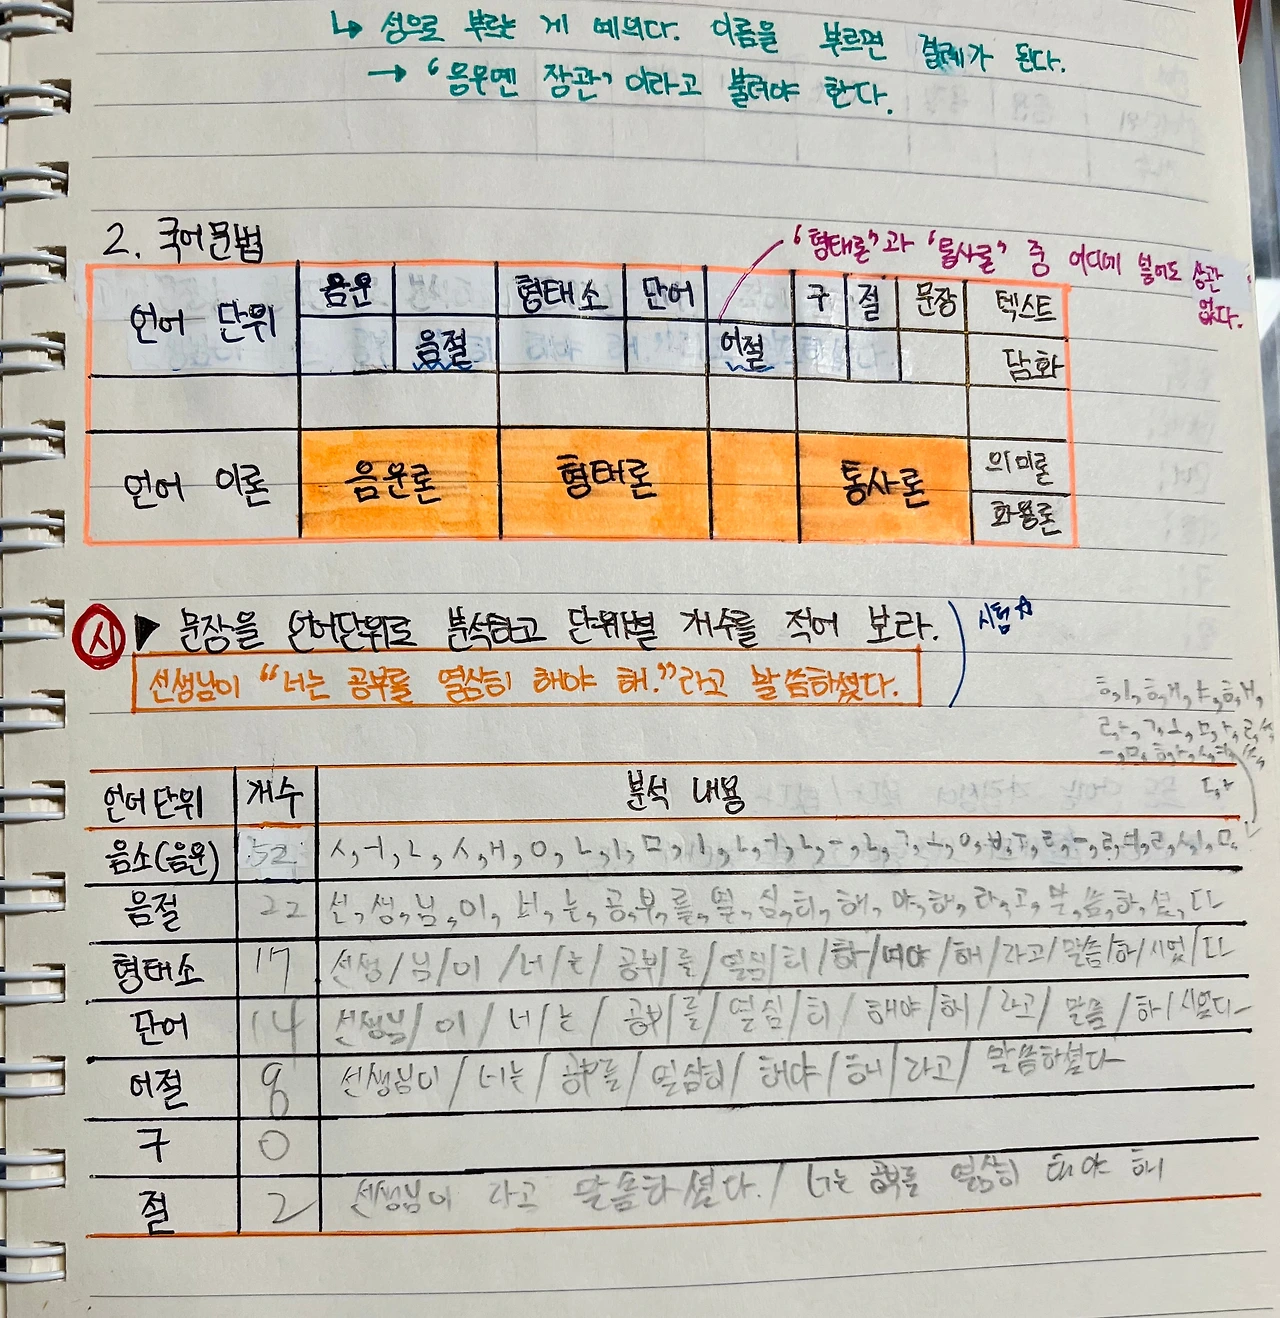 ↳ 성으로 부르는 게 예의다. 이름을 부르면 결례가 된다.
→ '응우옌 장관' 이라고 불러야 한다.
2. 국어문법
'형태론'과 '통사론' 중 어디에 넣어도 상관 없다.
언어 단위 음운 형태소 단어 구 절 문장 텍스트
음절 어절 담화
언어 이론 음운론 형태론 통사론 의미론
화용론
시 ▶ 문장을 언어단위로 분석하고 단위별 개수를 적어 보라. 시험☆
선생님이 "너는 공부를 열심히 해야 해."라고 말씀하셨다.
ㅎ,ㅣ,ㅎ,ㅐ,ㅑ,ㅎ,ㅐ,
ㄹ,ㅏ,ㄱ,ㅗ,ㅁ,ㅏ,ㄹ,ㅆ,
ㅡ,ㅁ,ㅎ,ㅏ,ㅅ,ㅕ,ㅆ,
ㄷ,ㅏ
언어 단위 개수 분석 내용
음소(음운) 52 ㅅ,ㅓ,ㄴ,ㅅ,ㅐ,ㅇ,ㄴ,ㅣ,ㅁ,ㅣ,ㄴ,ㅓ,ㄴ,ㅡ,ㄴ,ㄱ,ㅗ,ㅇ,ㅂ,ㅜ,ㄹ,ㅡ,ㄹ,ㅕ,ㄹ,ㅅ,ㅣ,ㅁ,
음절 22 선,생,님,이,너,는,공,부,를,열,심,히,해,야,해,라,고,말,씀,하,셨,다
형태소 17 선생/님/이/너/는/공부/를/열심/히/하/여야/해/라고/말씀/하/시었/다
단어 14 선생님/이/너/는/공부/를/열심/히/해야/해/라고/말씀/하/시었다
어절 8 선생님이/너는/공부를/열심히/해야/해/라고/말씀하셨다
구 0
절 2 선생님이 라고 말씀하셨다./너는 공부를 열심히 해야 해